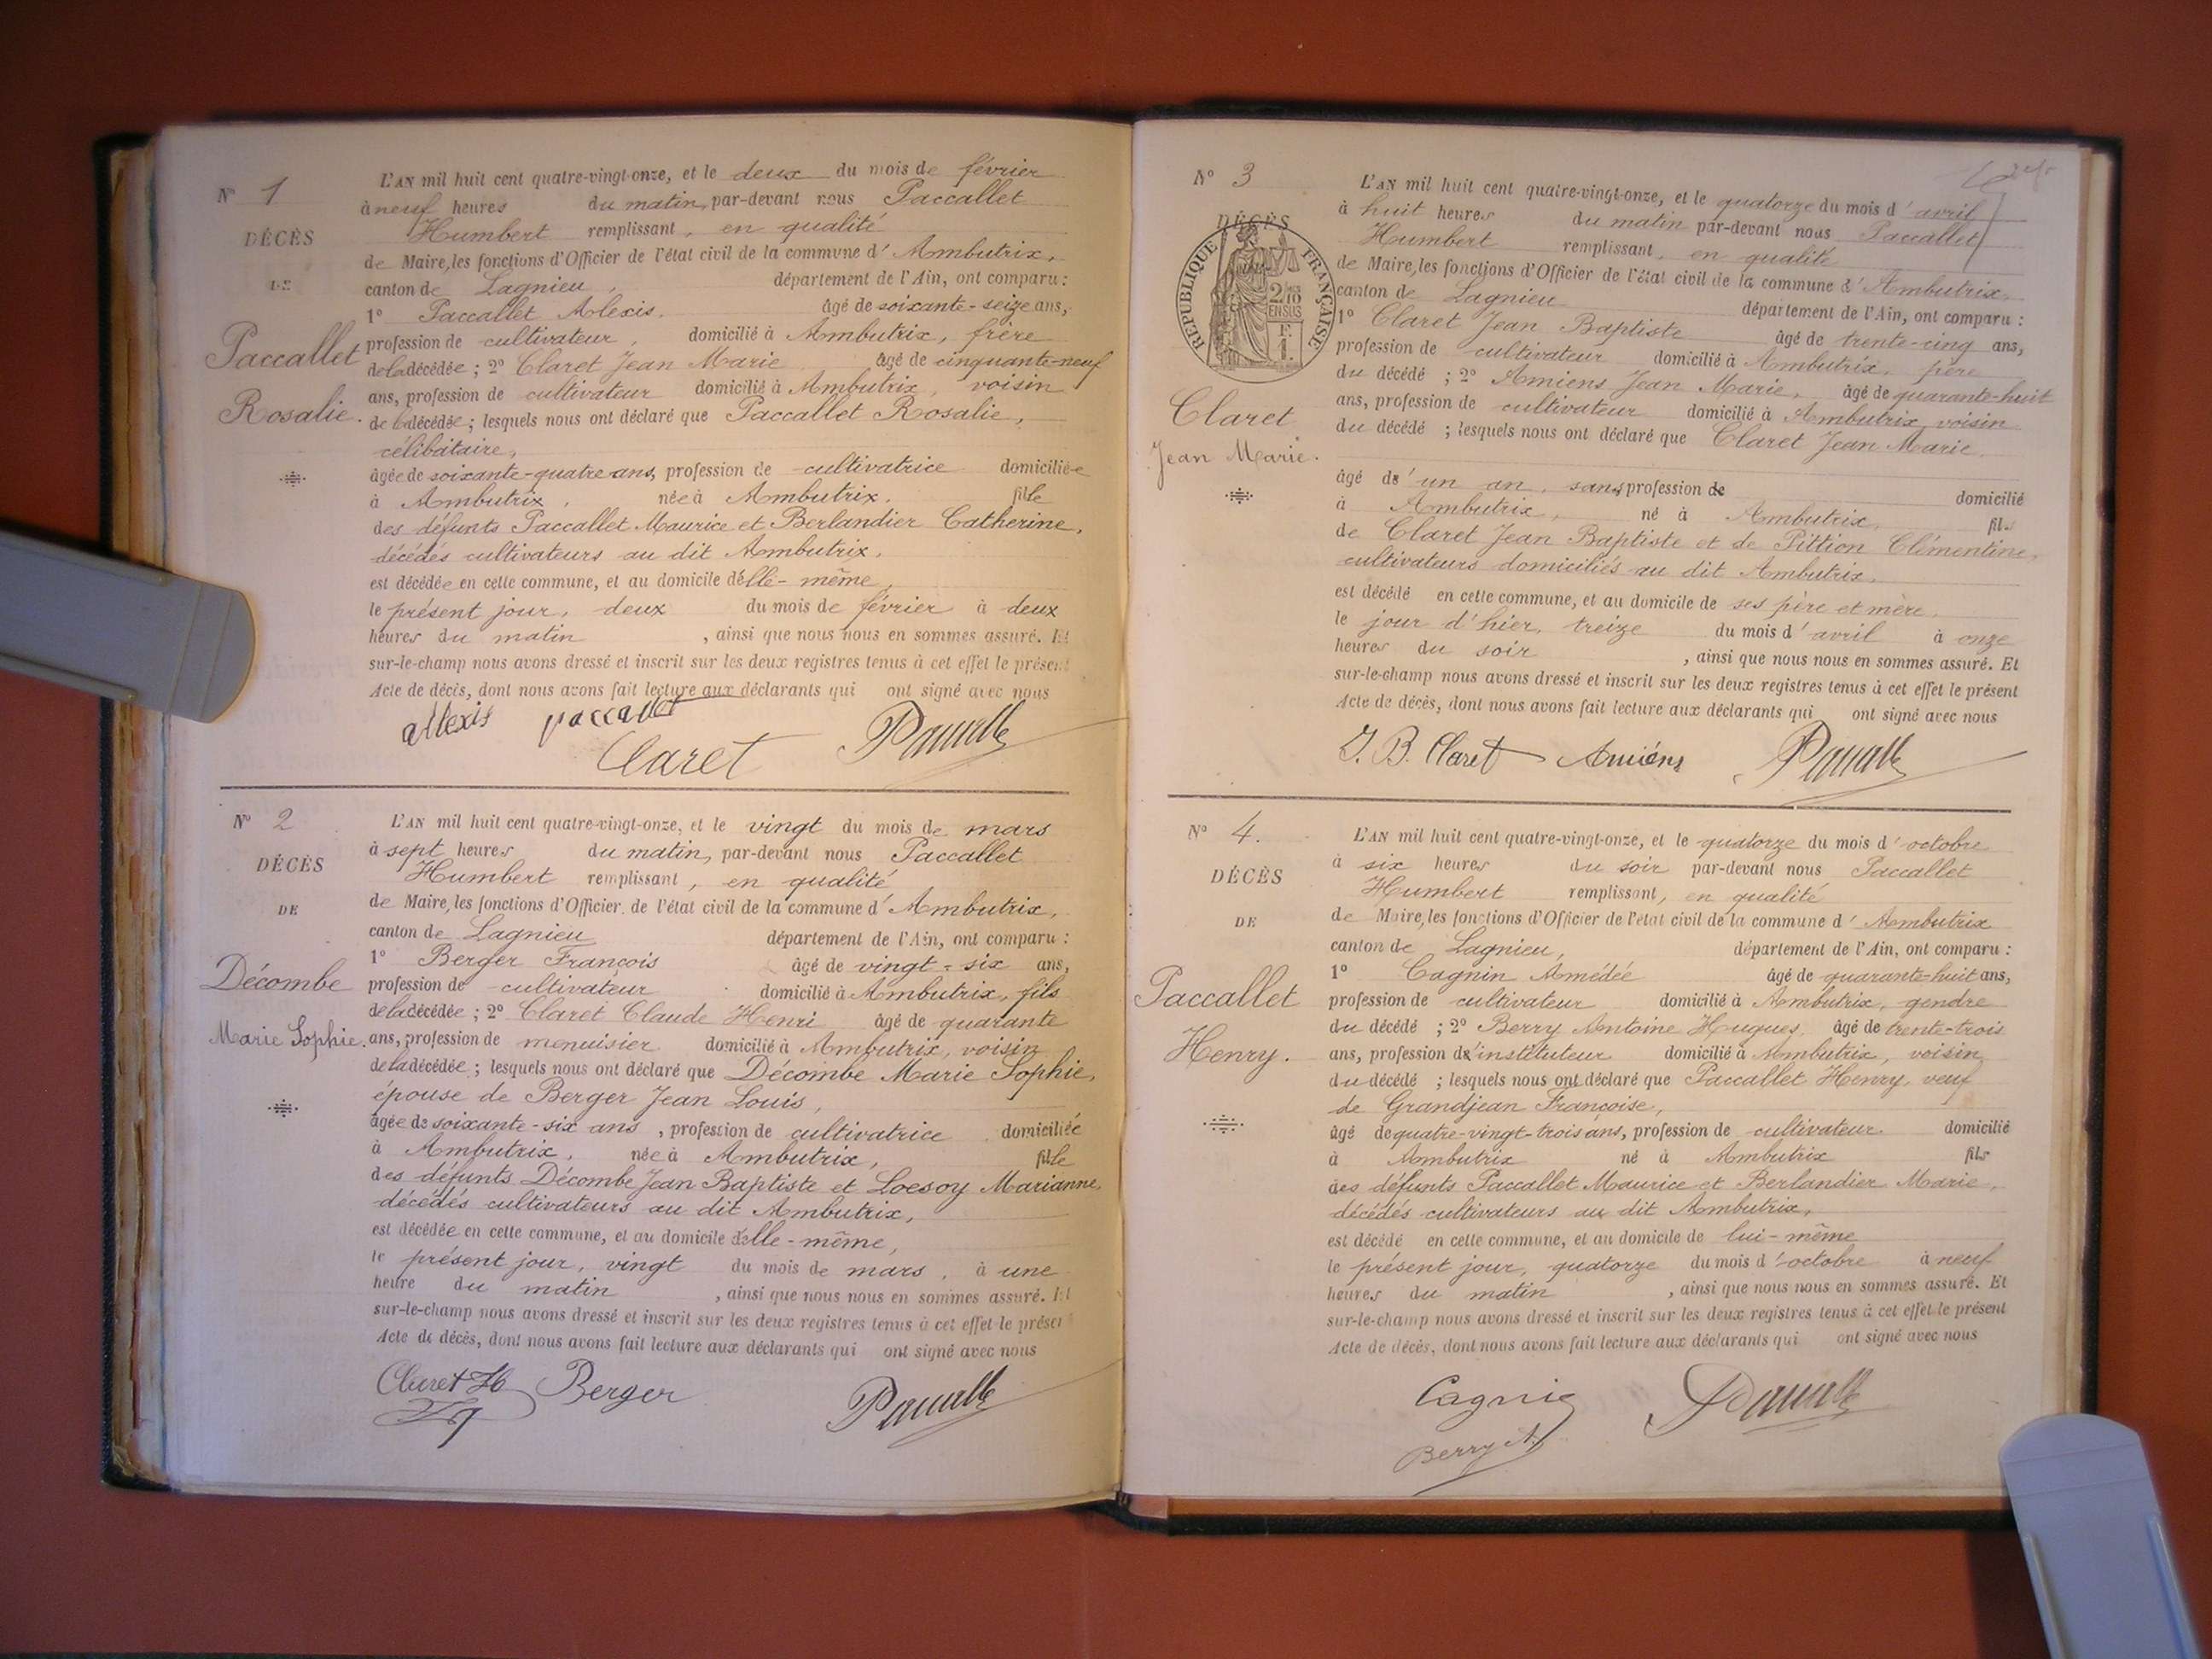 N° 1
DÉCÈS
DE
Paccallet
Rosalie.
L'AN mil huit cent quatre-vingt-onze, et le deux du mois de février
à neuf heures du matin, par-devant nous Paccallet
Humbert remplissant, en qualité
de Maire, les fonctions d'Officier de l'état civil de la commune d'Ambutrix,
canton de Lagnieu, département de l'Ain, ont comparu :
1° Paccallet Alexis. âgé de soixante-seize ans,
profession de cultivateur, domicilié à Ambutrix, frère
de la décédée ; 2° Claret Jean Marie âgé de cinquante-neuf
ans, profession de cultivateur domicilié à Ambutrix, voisin
de la décédée ; lesquels nous ont déclaré que Paccallet Rosalie,
célibataire,
âgée de soixante-quatre ans, profession de cultivatrice domiciliée
à Ambutrix, née à Ambutrix. fille
des défunts Paccallet Maurice et Berlandier Catherine,
décédés cultivateurs au dit Ambutrix,
est décédée en cette commune, et au domicile d'elle-même,
le présent jour, deux du mois de février à deux
heures du matin, ainsi que nous nous en sommes assuré. Et
sur-le-champ nous avons dressé et inscrit sur les deux registres tenus à cet effet le présent
Acte de décès, dont nous avons fait lecture aux déclarants qui ont signé avec nous
alexis paccallet
Claret
N° 2
DÉCÈS
DE
Décombe
Marie Sophie.
L'AN mil huit cent quatre-vingt-onze, et le vingt du mois de mars
à sept heures du matin, par-devant nous Paccallet
Humbert remplissant, en qualité
de Maire, les fonctions d'Officier de l'état civil de la commune d'Ambutrix,
canton de Lagnieu département de l'Ain, ont comparu :
1° Berger François âgé de vingt-six ans,
profession de cultivateur domicilié à Ambutrix, fils
de la décédée ; 2° Claret Claude Henri âgé de quarante
ans, profession de menuisier domicilié à Ambutrix, voisin
de la décédée ; lesquels nous ont déclaré que Décombe Marie Sophie,
épouse de Berger Jean Louis,
âgée de soixante-six ans, profession de cultivatrice domiciliée
à Ambutrix, née à Ambutrix, fille
des défunts Décombe Jean Baptiste et Loesoy Marianne,
décédés cultivateurs au dit Ambutrix,
est décédée en cette commune, et au domicile d'elle-même,
le présent jour, vingt du mois de mars, à une
heure du matin, ainsi que nous nous en sommes assuré. Et
sur-le-champ nous avons dressé et inscrit sur les deux registres tenus à cet effet le présent
Acte de décès, dont nous avons fait lecture aux déclarants qui ont signé avec nous
Claret H Berger
N° 3
DÉCÈS
RÉPUBLIQUE FRANÇAISE
2/10 EN SUS
F. 1.
Claret
Jean Marie.
L'AN mil huit cent quatre-vingt-onze, et le quatorze du mois d'avril
à huit heures du matin par-devant nous Paccallet
Humbert remplissant, en qualité
de Maire, les fonctions d'Officier de l'état civil de la commune d'Ambutrix,
canton de Lagnieu département de l'Ain, ont comparu :
1° Claret Jean Baptiste âgé de trente-cinq ans,
profession de cultivateur domicilié à Ambutrix, père
du décédé ; 2° Amiens Jean Marie, âgé de quarante-huit
ans, profession de cultivateur domicilié à Ambutrix, voisin
du décédé ; lesquels nous ont déclaré que Claret Jean Marie
âgé d'un an, sans profession de domicilié
à Ambutrix, né à Ambutrix, fils
de Claret Jean Baptiste et de Pittion Clémentine,
cultivateurs domiciliés au dit Ambutrix,
est décédé en cette commune, et au domicile de ses père et mère,
le jour d'hier, treize du mois d'avril à onze
heures du soir, ainsi que nous nous en sommes assuré. Et
sur-le-champ nous avons dressé et inscrit sur les deux registres tenus à cet effet le présent
Acte de décès, dont nous avons fait lecture aux déclarants qui ont signé avec nous
J. B. Claret Amiéns
N° 4.
DÉCÈS
DE
Paccallet
Henry.
L'AN mil huit cent quatre-vingt-onze, et le quatorze du mois d'octobre
à six heures du soir par-devant nous Paccallet
Humbert remplissant, en qualité
de Maire, les fonctions d'Officier de l'état civil de la commune d'Ambutrix
canton de Lagnieu, département de l'Ain, ont comparu :
1° Cagnin Amédée âgé de quarante-huit ans,
profession de cultivateur domicilié à Ambutrix, gendre
du décédé ; 2° Berry Antoine Hugues, âgé de trente-trois
ans, profession d'instituteur domicilié à Ambutrix, voisin
du décédé ; lesquels nous ont déclaré que Paccallet Henry, veuf
de Grandjean Françoise,
âgé de quatre-vingt-trois ans, profession de cultivateur domicilié
à Ambutrix né à Ambutrix fils
des défunts Paccallet Maurice et Berlandier Marie,
décédés cultivateurs au dit Ambutrix,
est décédé en cette commune, et au domicile de lui-même
le présent jour, quatorze du mois d'octobre à neuf
heures du matin, ainsi que nous nous en sommes assuré. Et
sur-le-champ nous avons dressé et inscrit sur les deux registres tenus à cet effet le présent
Acte de décès, dont nous avons fait lecture aux déclarants qui ont signé avec nous
Cagnin
Berry A